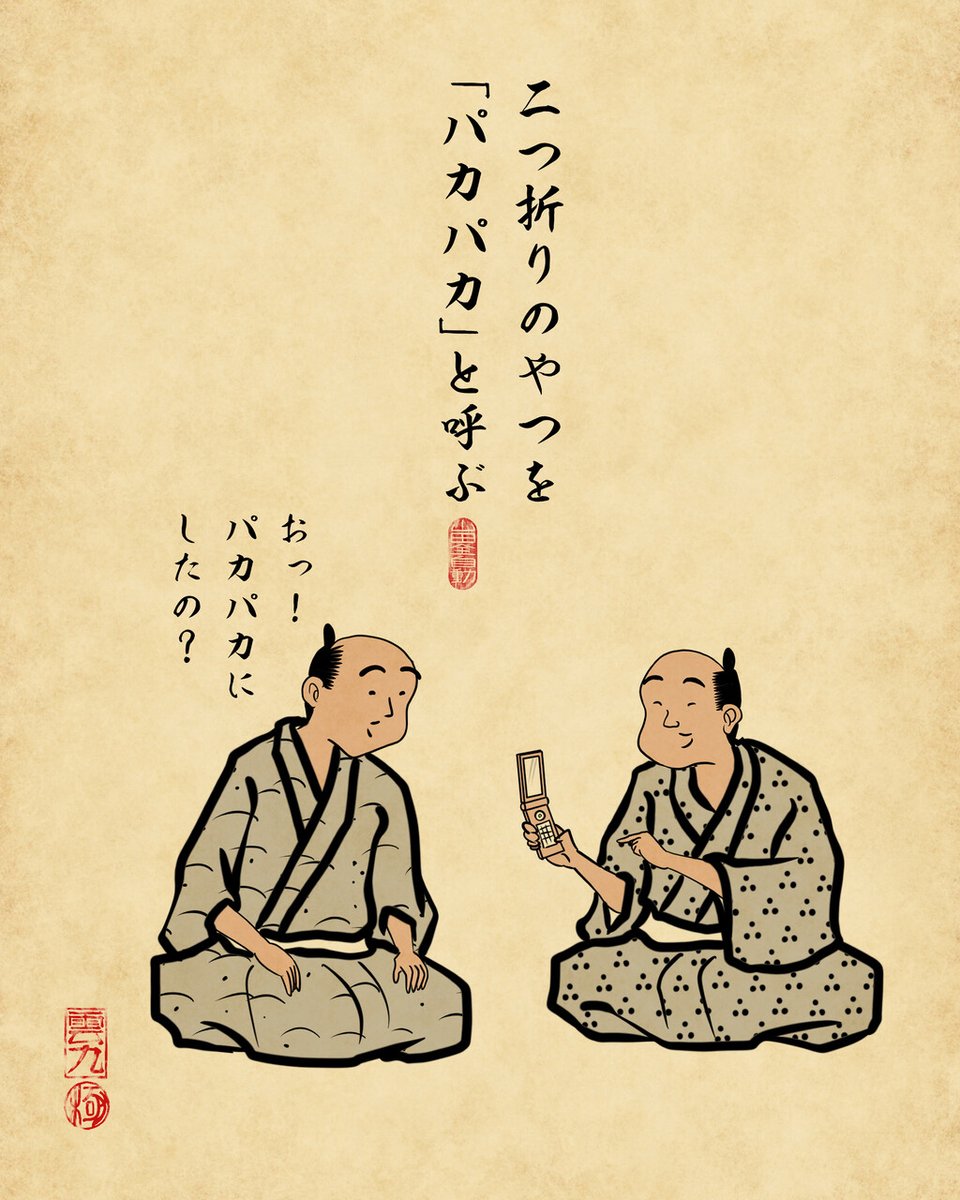 二つ折りのやつを
「パカパカ」と呼ぶ
おっ！
パカパカに
したの？